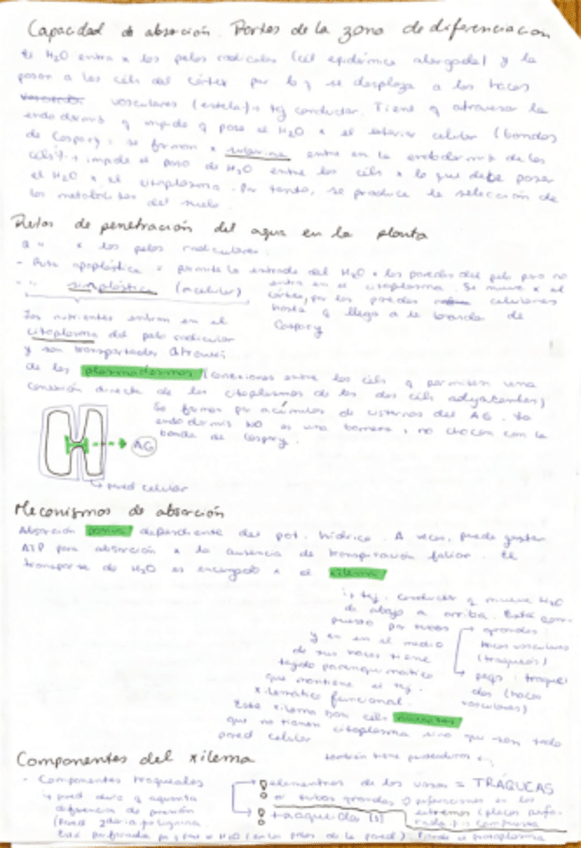 Capacidad de absorción. Partes de la zona de diferenciación
El H2O entra x los pelos radicales (cél epidérmica alargada) y la
pasan a las céls del córtex por lo q se desplaza a los haces
vasculares (estela) → tej conductor. Tiene q atravesar la
endodermis q impide q pase el H2O x el exterior celular (bandas
de Caspary, se forman x suberina entre en la endodermis de las
céls) → impide el paso de H2O entre las céls x lo que debe pasar
el H2O x el citoplasma. Por tanto, se produce la selección de
los metabolitos del suelo.
Rutas de penetración del agua en la planta
a " x los pelos radiculares.
- Ruta apoplástica = permite la entrada del H2O x las paredes del pelo pero no
entra en el citoplasma. Se mueve x el
- " simplástica (celular)
córtex, por las paredes celulares
hasta q llega a la banda de
Caspary
Los nutrientes entran en el
citoplasma del pelo radicular
y son transportados através
de los plasmodesmos (conexiones entre las céls q permiten una
conexión directa de los citoplasmas de las dos céls adyacentes)
Se forman por acúmulos de cisternas del AG. La
endodermis NO es una barrera, no chocan con la
banda de Caspary.
AG
pared celular
Mecanismos de absorción
Absorción pasiva dependiente del pot. hídrico. A veces, puede gastar
ATP para absorción x la ausencia de transpiración foliar. El
transporte de H2O es encargado x el xilema
↳ tej. conductor q mueve H2O
de abajo a arriba. Está com-
puesto por tubos
grandes:
y en el medio
haces vasculares
de sus haces tiene
(traqueas)
tejido parenquimático
peqs: traquei
que mantiene el tej.
das (haces
xilemático funcional.
vasculares)
Este xilema son céls muertas
que no tienen citoplasma sino que son todo
pared celular
también tiene
Componentes del xilema
- Componentes traqueales
elementos de los vasos = TRÁQUEAS
↳ pared dura q aguanta
o tubos grandes
diferencia de presión
extremos (placa perfo-
traqueidas